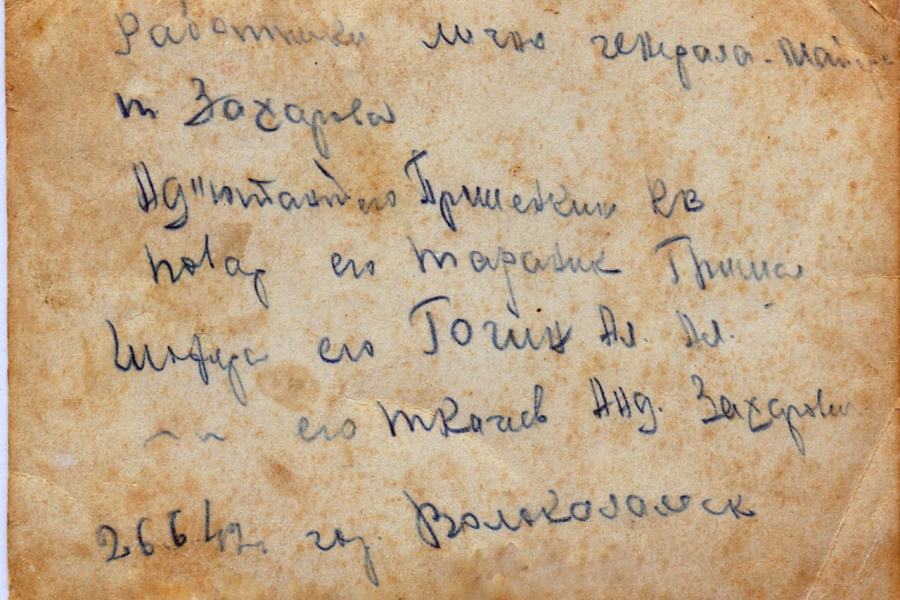 Работники лично генерала-май
т Захарова
Ад"ютант его Пришенкин КВ
повар его Тараник Гриша
Шофера его Гогин Ал. Ал.
его Ткачев Анд. Захарович
26.6.42 год. Волоколамск